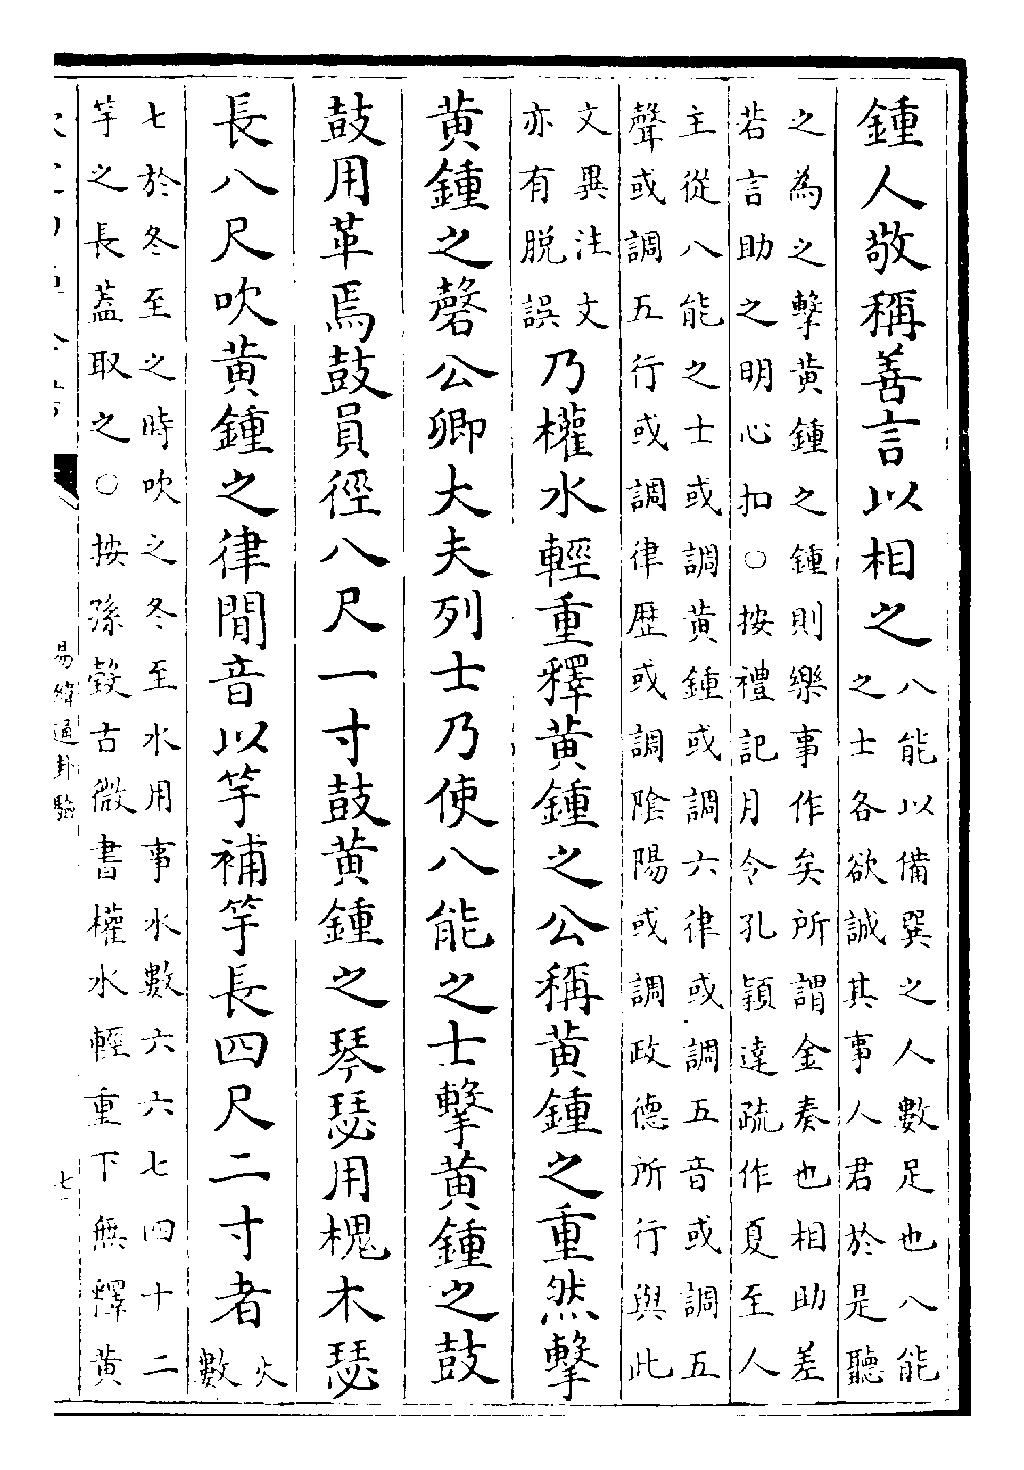 鍾人敬稱善言以相之
八能以備巽之人數足也八能
之士各欲誠其事人君於是聽
之為之擊黄鍾之鍾則樂事作矣所謂金奏也相助差
若言助之明心扣○按禮記月令孔穎達疏作夏至人
主從八能之士或調黄鍾或調六律或調五音或調五
聲或調五行或調律歴或調隂陽或調政德所行與此
文異注文
亦有脱誤
乃權水輕重釋黄鍾之公稱黄鍾之重然擊
黄鍾之磬公卿大夫列士乃使八能之士擊黄鍾之鼓
鼓用革焉鼓員徑八尺一寸鼓黄鍾之琴瑟用槐木瑟
長八尺吹黄鍾之律間音以竽補竽長四尺二寸者
火
數
七於冬至之時吹之冬至水用事水數六六七四十二
竽之長蓋取之○按孫瑴古微書權水輕重下無釋黄
易緯通卦驗
七